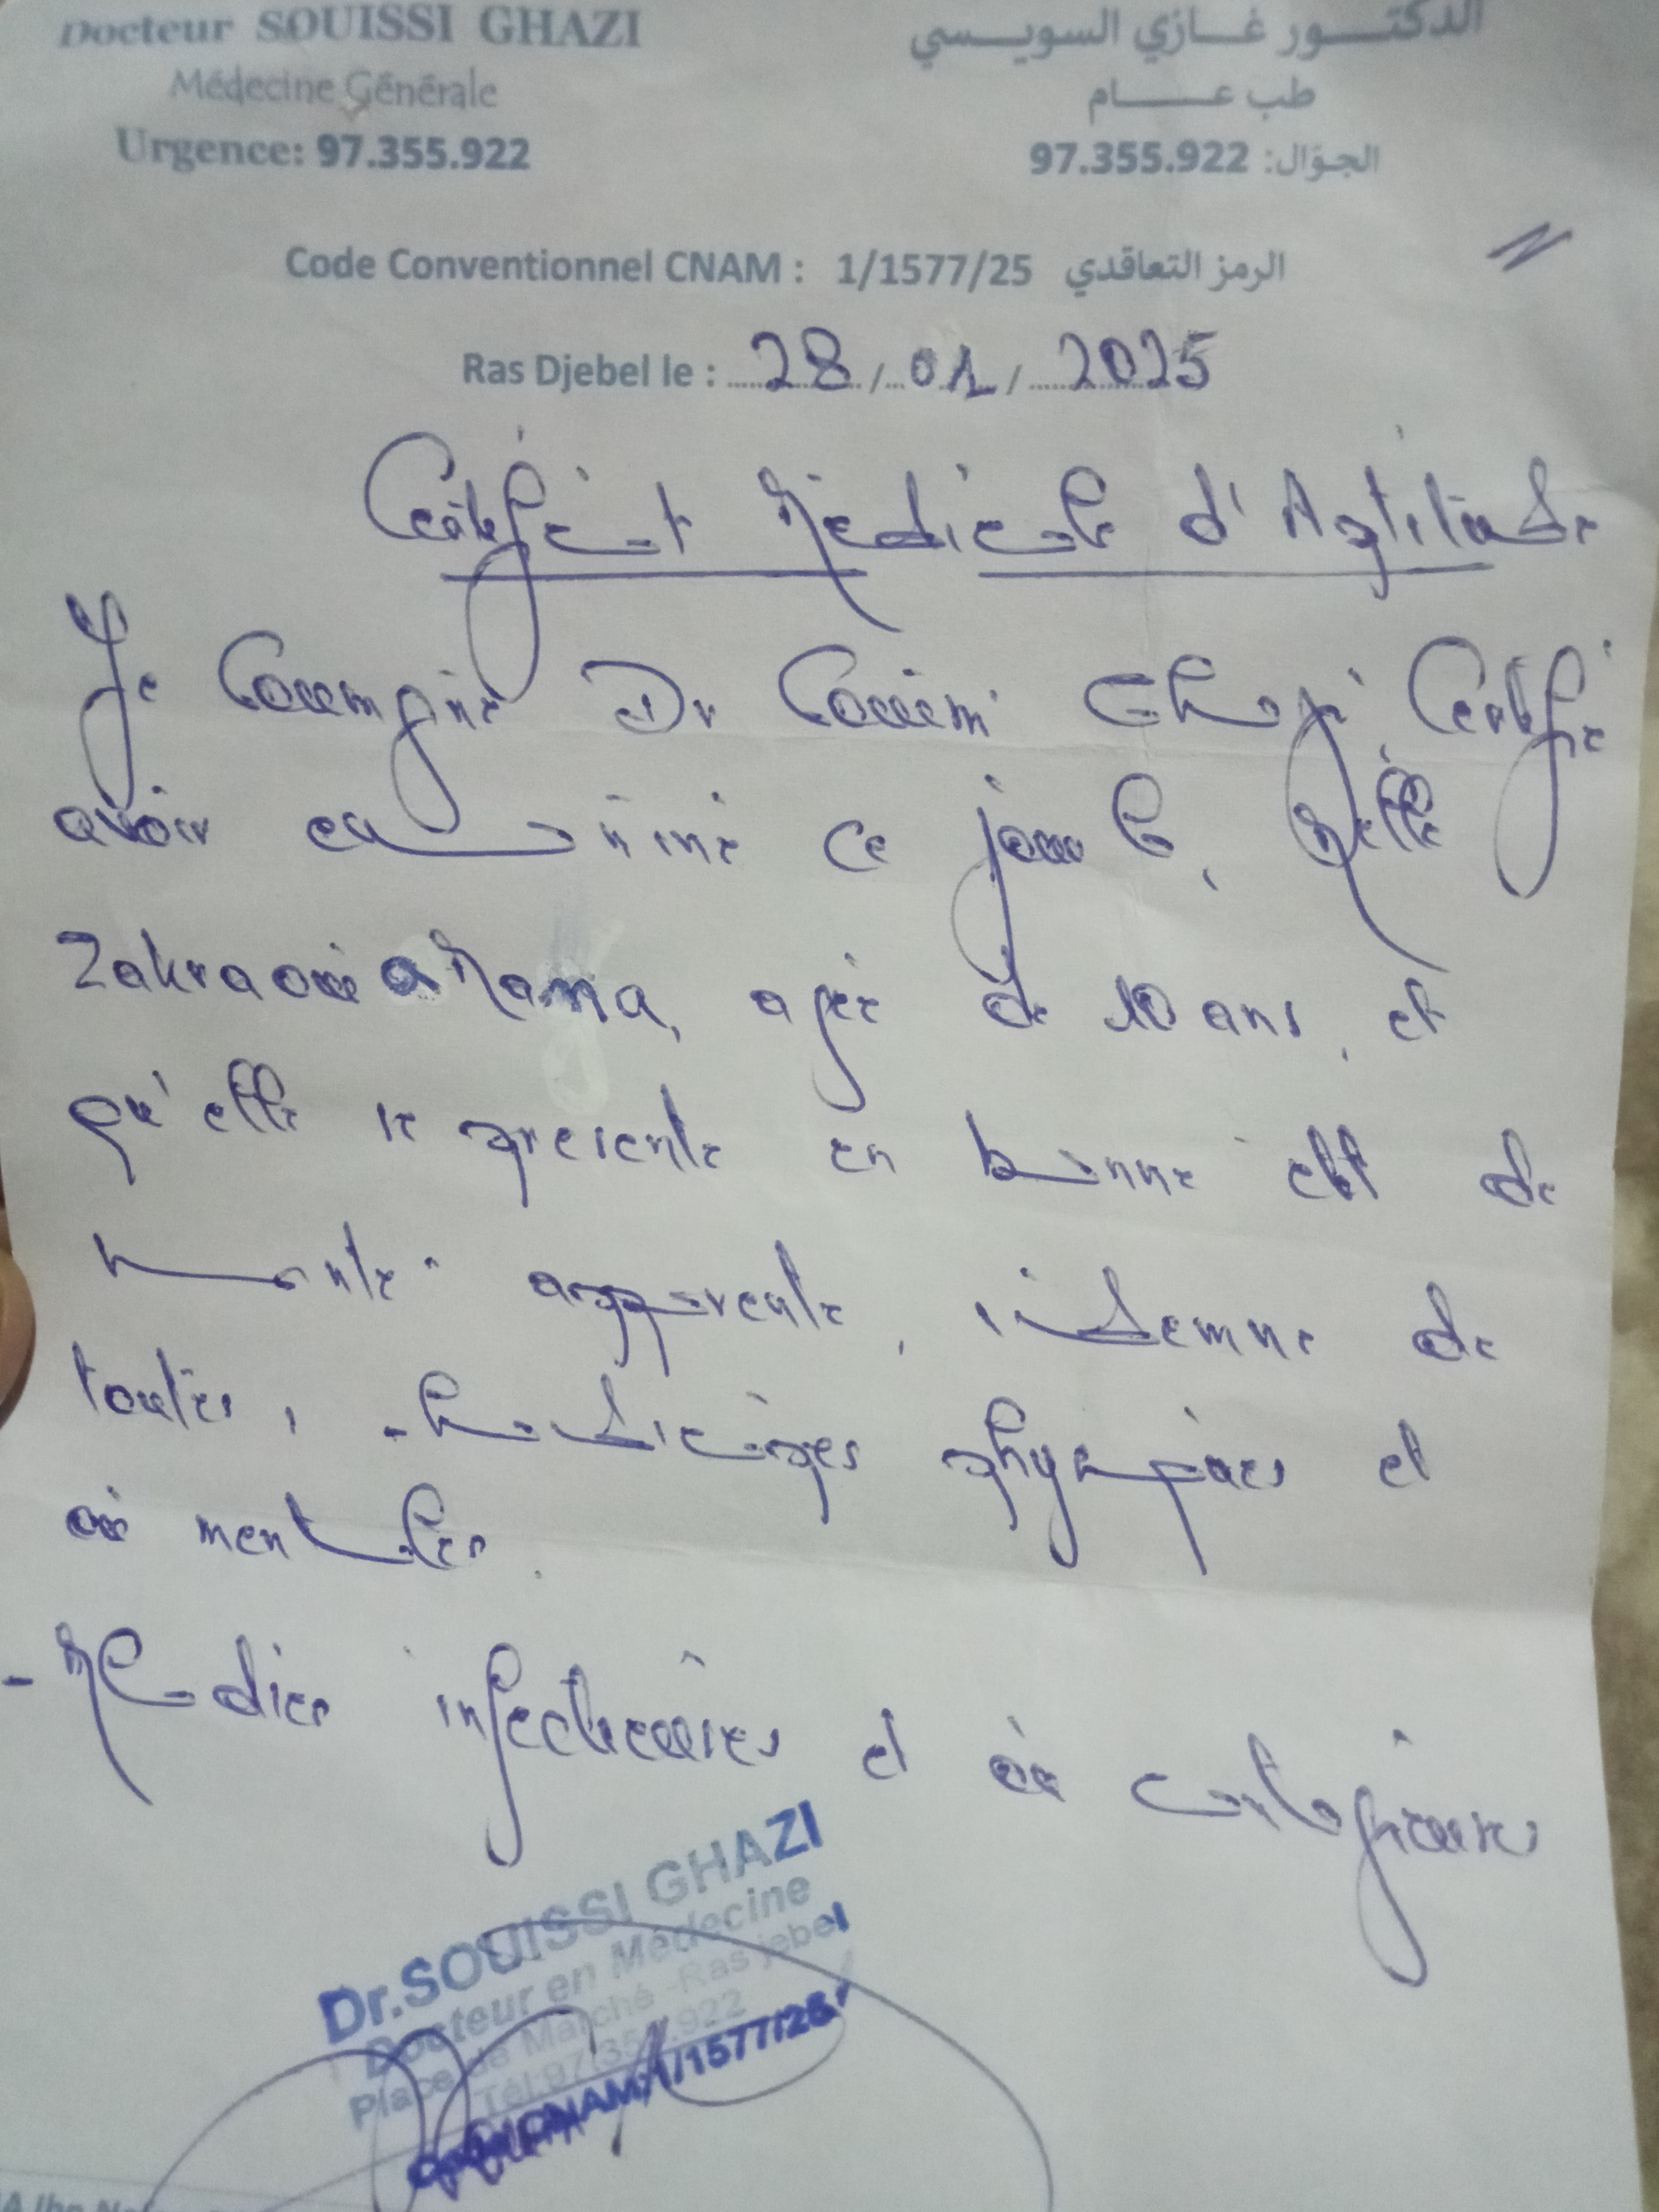 Docteur SOUISSI GHAZI
Médecine Générale
Urgence: 97.355.922
الدكتور غازي السويسي
طب عام
الجوّال: 97.355.922
Code Conventionnel CNAM : 1/1577/25 الرمز التعاقدي
Ras Djebel le : 28 / 01 / 2025
Certificat Médicale d'Aptitude
Je soussigné Dr Souissi Ghazi, Certifie
avoir examiné ce jour la, Melle
Zakraoui Mama, agée de 10 ans, et
qu'elle se presente en bonne etat de
santé apparente, indemne de
toutes, - handicapes physiques et
ou mentales.
- Maladies infectieuses et ou contagieuses
Dr.SOUISSI GHAZI
Docteur en Médecine
Place de Marché -Ras jebel
Tél:97.355.922
CNAM:1/1577/25